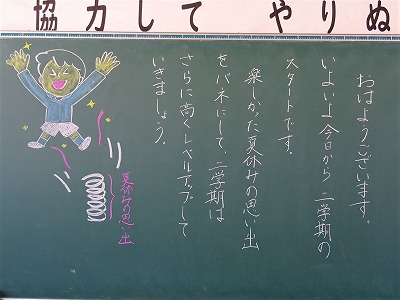 協力して やりぬ
おはようございます。
いよいよ今日から二学期の
スタートです。
楽しかった夏休みの思い出
をバネにして、二学期は
さらに高くレベルアップして
いきましょう。
夏休みの思い出